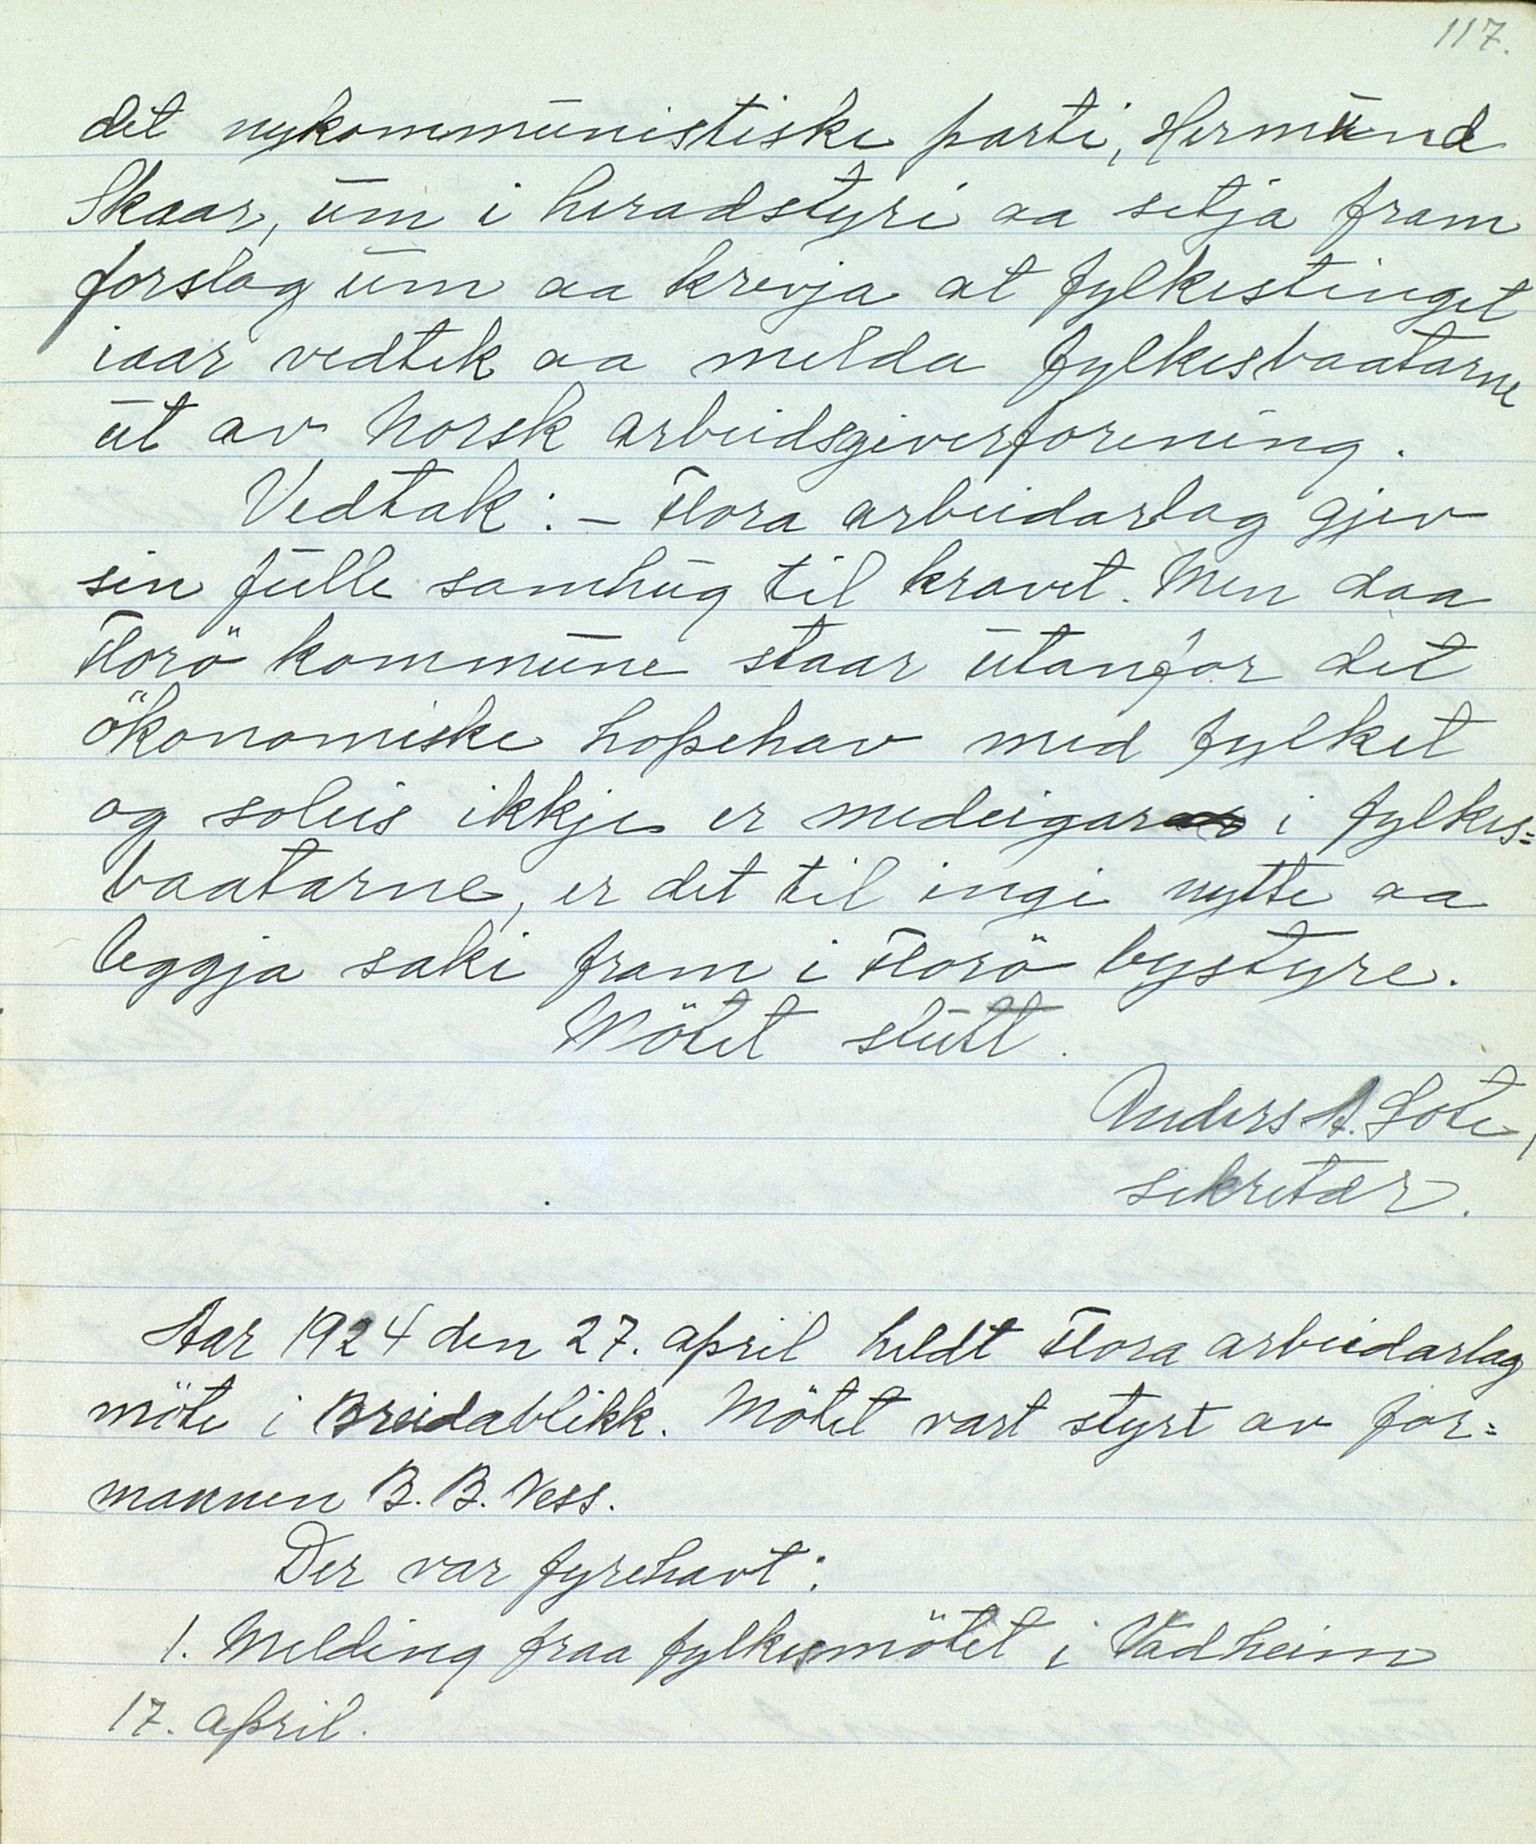 117.
det nykommunistiske parti, Hermund
Skaar, um i heradstyri aa setja fram
forslag um aa krevja at fylkestinget
iaar vedtek aa melda fylkesbaatarne
ut av Norsk arbeidsgiverforening.
Vedtak: - Flora arbeidarlag gjev
sin fulle samhug til kravet. Men daa
Florö kommune staar utanfor det
ökonomiske hopehav med fylket
og soleis ikkje er medeigar i fylkes=
baatarne, er det til ingi nytte aa
leggja saki fram i Florö bystyre.
Mötet slutt.
Anders A. Sote,
sekretær.
Aar 1924 den 27. april heldt Flora arbeidarlag
möte i Breidablikk. Mötet vart styrt av for=
mannen B. B. Ness.
Der var fyrehavt:
1. Melding fraa fylkesmötet i Vadheim
17. april.